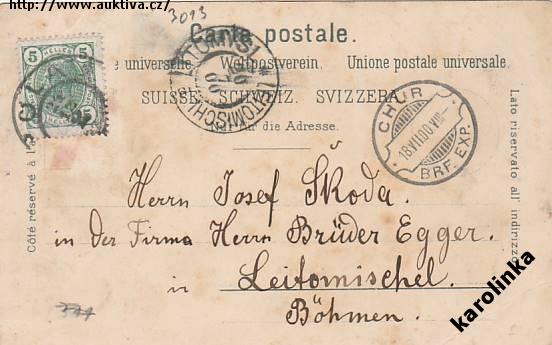 http://www.auktiva.cz/
3013
Carte postale.
e universelle. Weltpostverein. Unione postale universale.
SUISSE. SCHWEIZ. SVIZZERA.
für die Adresse.
5 HELLER 5
CHUR
18.VII.00.VIII
BRF. EXP.
Côté réservé à l'a
Lato riservato all' indirizzo
Herrn Josef Škoda.
in der Firma Herrn Brüder Egger.
in Leitomischel.
Böhmen.
karolinka